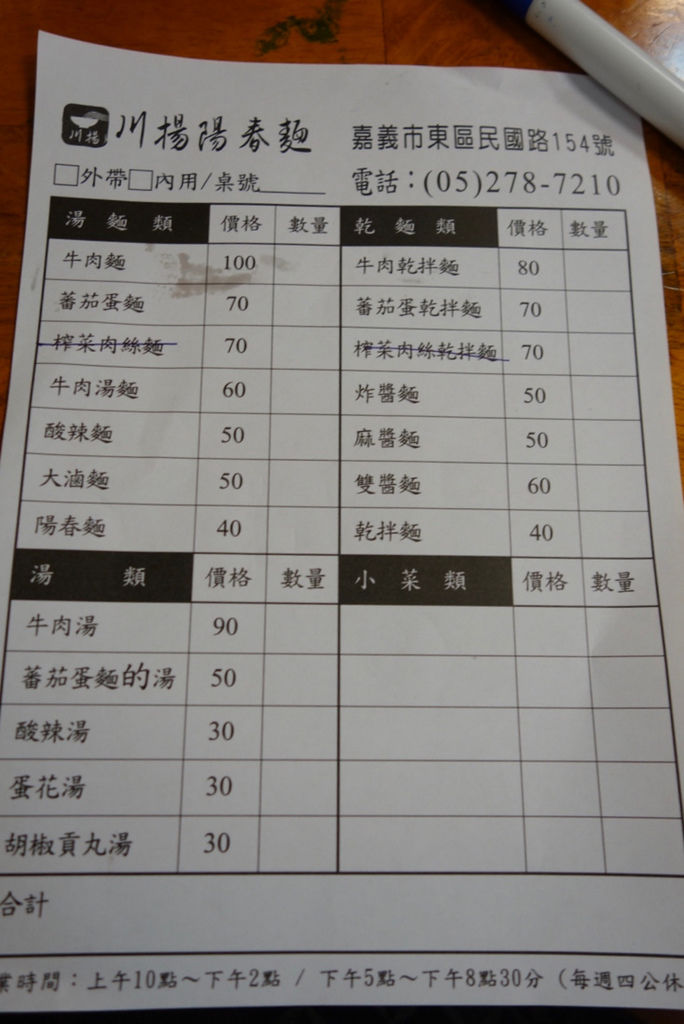 川揚 川揚陽春麵 嘉義市東區民國路154號
□外帶□內用/桌號______ 電話：(05)278-7210
湯麵類 價格 數量 乾麵類 價格 數量
牛肉麵 100 牛肉乾拌麵 80
蕃茄蛋麵 70 蕃茄蛋乾拌麵 70
榨菜肉絲麵 70 榨菜肉絲乾拌麵 70
牛肉湯麵 60 炸醬麵 50
酸辣麵 50 麻醬麵 50
大滷麵 50 雙醬麵 60
陽春麵 40 乾拌麵 40
湯類 價格 數量 小菜類 價格 數量
牛肉湯 90
蕃茄蛋麵的湯 50
酸辣湯 30
蛋花湯 30
胡椒貢丸湯 30
合計
業時間：上午10點～下午2點 / 下午5點～下午8點30分 (每週四公休